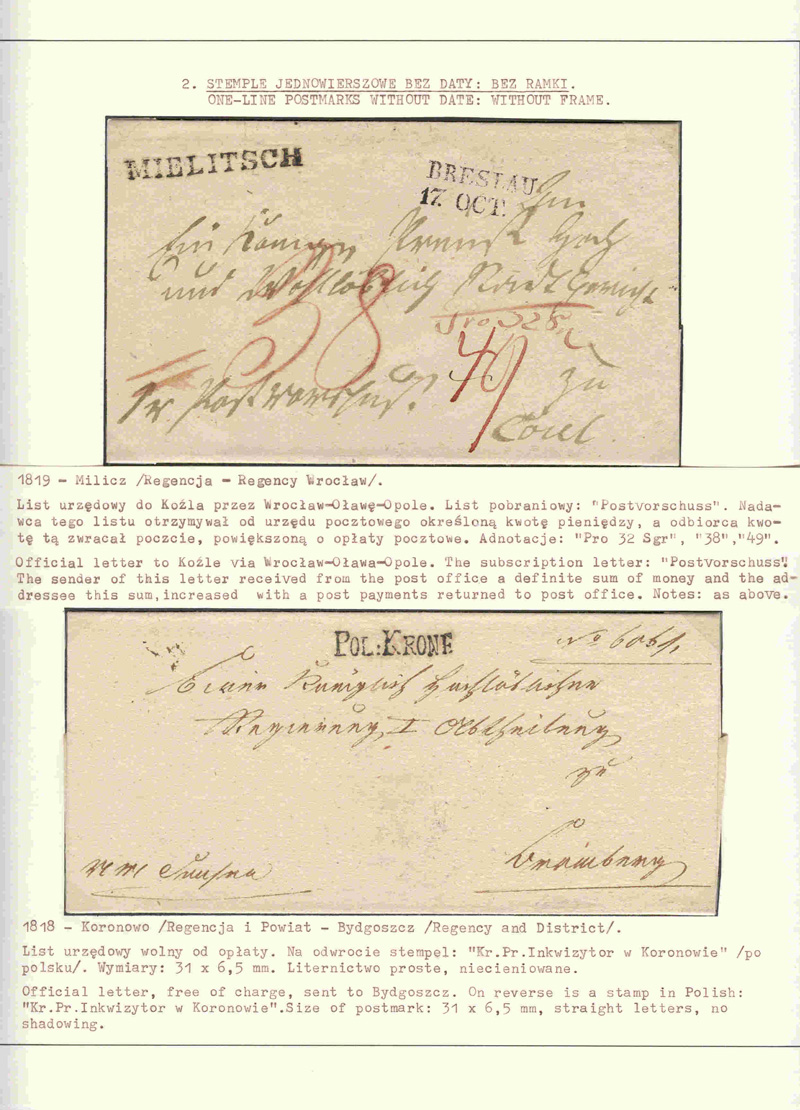 2. STEMPLE JEDNOWIERSZOWE BEZ DATY: BEZ RAMKI.
ONE-LINE POSTMARKS WITHOUT DATE: WITHOUT FRAME.
MIELITSCH
BRESLAU
17 OCT.
Ein Königl Preuß Hoch
und Wohllöblich Stadt Gericht
Pro 32 S
38
49
zu
Cosel
Postvorschuß.
1819 - Milicz /Regencja - Regency Wrocław/.
List urzędowy do Koźla przez Wrocław-Oławę-Opole. List pobraniowy: "Postvorschuss". Nada-
wca tego listu otrzymywał od urzędu pocztowego określoną kwotę pieniędzy, a odbiorca kwo-
tę tą zwracał poczcie, powiększoną o opłaty pocztowe. Adnotacje: "Pro 32 Sgr", "38","49".
Official letter to Koźle via Wrocław-Oława-Opole. The subscription letter: "Postvorschuss".
The sender of this letter received from the post office a definite sum of money and the ad-
dressee this sum,increased with a post payments returned to post office. Notes: as above.
POL:KRONE
No 6069,
Einer Königlich Hochlöblichen
Regierung I Abtheilung
zu
Bromberg
1818 - Koronowo /Regencja i Powiat - Bydgoszcz /Regency and District/.
List urzędowy wolny od opłaty. Na odwrocie stempel: "Kr.Pr.Inkwizytor w Koronowie" /po
polsku/. Wymiary: 31 x 6,5 mm. Liternictwo proste, niecieniowane.
Official letter, free of charge, sent to Bydgoszcz. On reverse is a stamp in Polish:
"Kr.Pr.Inkwizytor w Koronowie".Size of postmark: 31 x 6,5 mm, straight letters, no
shadowing.